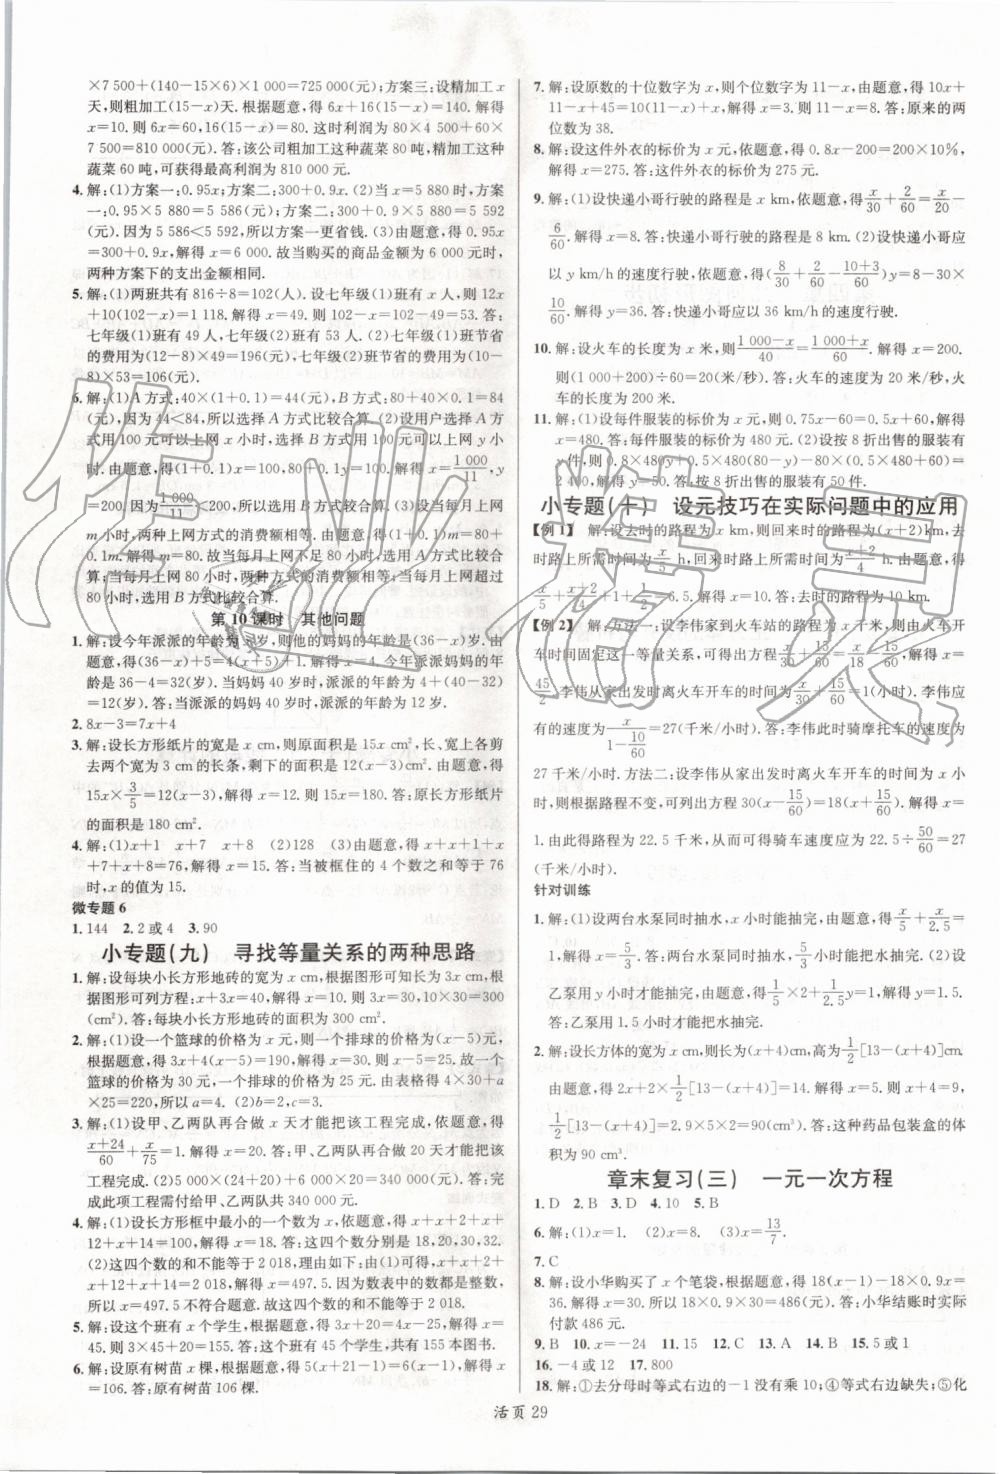 ×7 500+(140-15×6)×1 000=725 000(元);方案三:设精加工 x
天,则粗加工(15-x)天.根据题意,得 6x+16(15-x)=140. 解得
x=10. 则 6x=60,16(15-x)=80. 这时利润为 80×4 500+60×
7 500=810 000(元). 答:该公司粗加工这种蔬菜 80 吨,精加工这种
蔬菜 60 吨,可获得最高利润为 810 000 元.
4. 解:(1)方案一:0.95x;方案二:300+0.9x. (2)当 x=5 880 时,方案
一:0.95×5 880=5 586(元);方案二:300+0.9×5 880=5 592
(元). 因为 5 586<5 592,所以方案一更省钱. (3)由题意,得 0.95x
=300+0.9x,解得 x=6 000. 故当购买的商品金额为 6 000 元时,
两种方案下的支出金额相同.
5. 解:(1)两班共有 816÷8=102(人). 设七年级(1)班有 x 人,则 12x
+10(102-x)=1 118. 解得 x=49. 则 102-x=102-49=53. 答:
七年级(1)班有 49 人,七年级(2)班有 53 人. (2)七年级(1)班节省
的费用为(12-8)×49=196(元),七年级(2)班节省的费用为(10-
8)×53=106(元).
6. 解:(1)A 方式:40×(1+0.1)=44(元),B 方式:80+40×0.1=84
(元),因为 44<84,所以选择 A 方式比较合算. (2)设用户选择 A 方
式用 100 元可以上网 x 小时,选择 B 方式用 100 元可以上网 y 小
时. 由题意,得(1+0.1)x=100,80+0.1y=100. 解得 x=1 000/11,y=
200. 因为1 000/11<200,所以选用 B 方式比较合算. (3)设每月上网
m 小时,两种上网方式的费用相同. 由题意,得(1+0.1)m=80+
0.1m. 解得 m=80. 故当每月上网不足 80 小时,选用 A 方式比较合
算;当每月上网 80 小时,两种方式的费用相同;当每月上网超过
80 小时,选用 B 方式比较合算.
第 10 课时 其他问题
1. 解:设今年派派的年龄为 x 岁,则他的妈妈的年龄是(36-x)岁. 由
题意,得 36-x+5=4(x+5)+1. 解得 x=4. 今年派派的妈妈的年
龄是 36-4=32(岁). 当派派的妈妈 40 岁时,派派的年龄为 4+(40-32)
=12(岁). 答:当派派的妈妈 40 岁时,派派的年龄为 12 岁.
2. 8x-3=7x+4
3. 解:设长方形纸片的宽是 x cm,则原面积是 15x cm²,长、宽上各剪
去两个宽为 3 cm 的长条,剩下的面积是 12(x-3)cm². 由题意,得
15x×3/5=12(x-3),解得 x=12. 则 15x=180. 答:原长方形纸片
的面积是 180 cm².
4. 解:(1)x+1 x+7 x+8 (2)128 (3)由题意,得 x+x+1+x
+7+x+8=76,解得 x=15. 答:当被框住的 4 个数之和等于 76
时,x 的值为 15.
微专题 6
1. 144 2. 2 或 4 3. 90
小专题(九) 寻找等量关系的两种思路
1. 解:设每块小长方形地砖的宽为 x cm,根据图形可知长为 3x cm,根
据图形可列方程:x+3x=40,解得 x=10. 则 3x=30,10×30=300
(cm²). 答:每块小长方形地砖的面积为 300 cm².
2. 解:(1)设一个篮球的价格为 x 元,则一个排球的价格为(x-5)元,
根据题意,得 3x+4(x-5)=190. 解得 x=30. 则 x-5=25. 故一个
篮球的价格为 30 元,一个排球的价格为 25 元. 由表格得 4×30+a
×25=220,所以 a=4. (2)b=2,c=3.
3. 解:(1)设甲、乙两队再合做 x 天才能把该工程完成,依题意,得
x+24/60+x/75=1. 解得 x=20. 答:甲、乙两队再合做 20 天才能把该
工程完成. (2)5 000×(24+20)+4 000×20=300 000(元). 答:完
成此项工程需付给甲、乙两队共 300 000 元.
4. 解:(1)设长方形框中最小的一个数为 x,依题意,得 x+x+2+x+
12+x+14=108. 解得 x=20. 答:这四个数分别是 18,20,30,32.
(2)这四个数的和不能等于 2 018,理由如下:由上,得 x+x+2+
x+12+x+14=2 018,解得 x=497.5. 因为数表中的数都是整数,
所以 x=497.5 不符合题意. 故这四个数的和不能等于 2 018.
5. 解:设这个班有 x 个学生,根据题意,得 3x+20=4x-25,解得 x=
45. 则 3×45+20=155. 答:这个班有 45 个学生,共有 155 本图书.
6. 解:设原有树苗 x 棵,根据题意,得 5(x+21-1)=6(x-1),解得 x
=106. 答:原有树苗 106 棵.
7. 解:设原数的十位数字为 x,则个位数字为 11-x,由题意,得 10x+
11-x+45=10(11-x)+x. 解得 x=3. 则 11-x=8. 答:原来的两
位数为 38.
8. 解:设这件外衣的标价为 x 元,依题意,得 0.8x-200=200×10%,
解得 x=275. 答:这件外衣的标价为 275 元.
9. 解:(1)设快递小哥行驶的路程是 x km,则由题意,得 x/30+2/60=x/20-
6/60. 解得 x=8. 答:快递小哥行驶的路程是 8 km. (2)设快递小哥应
以 y km/h 的速度行驶,依题意,得(8/30+2/60-10+3/60)y=8-30×
10/60. 解得 y=36. 答:快递小哥应以 36 km/h 的速度行驶.
10. 解:设火车的长度为 x 米,则由题意,得1 000-x/40=1 000+x/60. 解得 x=200.
则(1 000+200)÷60=20(米/秒). 答:火车的速度为 20 米/秒,火
车的长度为 200 米.
11. 解:(1)设每件服装的标价为 x 元,则 0.75x-60=0.5x+60,解得
x=480. 答:每件服装的标价为 480 元. (2)设按 8 折出售的服装有
y 件,则[0.8×480-(0.5×480+60)]y-(80-y)×60=
2 400,解得 y=50. 答:按 8 折出售的服装有 50 件.
小专题(十) 设元技巧在实际问题中的应用
【例 1】 解:设去时的路程为 x km,则回来时的路程为(x+2)km,去
时路上所需时间为x/5 h,回来时路上所需时间为x+2/4 h. 由题意,得
x/5+x+2/4+1+1/2=6.5. 解得 x=10. 答:去时的路程为 10 km.
【例 2】 解:方法一:设李伟家到火车站的路程为 x 千米,则由火车开
车时间固定这一等量关系,列方程得x/30+15/60=x/18-15/60. 解得 x=
45/2. 李伟从家出发时离火车开车的时间为x/30+15/60=1(小时),李伟应
有的速度为45/2/1-10/60=27(千米/小时). 答:李伟此时骑摩托车的速度为
27 千米/小时. 方法二:设李伟从家出发时离火车开车的时间为 x 小
时,则根据路程不变,可列出方程 30(x-15/60)=18(x+15/60). 解得 x=
1. 由此得路程为 22.5 千米,从而可得骑车速度应为 22.5÷50/60=27
(千米/小时).
针对训练
1. 解:(1)设两台水泵同时抽水,x 小时能抽完,由题意,得x/5+x/2.5=1.
解得 x=5/3. 答:两台水泵同时抽水,5/3小时能把水抽完. (2)设
乙泵用 y 小时才能抽完,由题意,得1/5×2+1/2.5y=1. 解得 y=1.5.
答:乙泵用 1.5 小时才能把水抽完.
2. 解:设长方体的宽为 x cm,则长为(x+4)cm,高为1/2[13-(x+4)]cm.
由题意,得 2x+2×1/2[13-(x+4)]=14. 解得 x=5. 则 x+4=9,
1/2[13-(x+4)]=2. 9×5×2=90(cm³). 答:这种药品包装盒的体
积为 90 cm³.
章末复习(三) 一元一次方程
1. D 2. B 3. D 4. 10 5. B
6. 解:(1)x=1. (2)x=8. (3)x=13/7.
7. C
8. 解:设小华购买了 x 个笔袋,根据题意,得 18(x-1)-18×0.9x=
36. 解得 x=30. 则 18×0.9×30=486(元). 答:小华结账时实际
付款 486 元.
9. B 10. x=-24 11. 15 12. C 13. A 14. B 15. 5 或 1
16. -4 或 12 17. 800
18. 解:①去分母时等式右边的-1 没有乘 10;④等式右边缺失;⑤化
活页 29
作业精灵